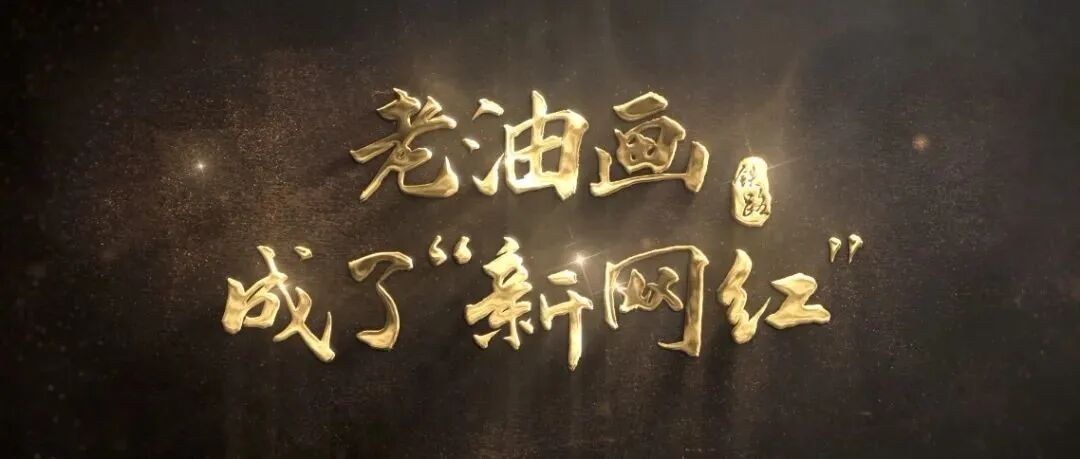 老油画
成了“新网红”